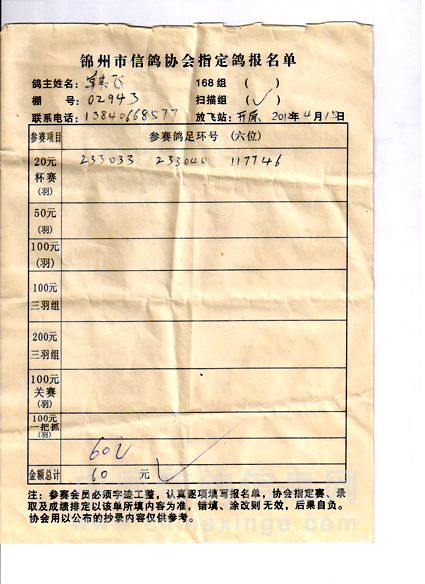 锦州市信鸽协会指定鸽报名单
鸽主姓名: 飞 168组 ( )
棚 号: 02943 扫描组 (✓)
联系电话: 13840668577 放飞站: 开原 2012年4月15日
参赛项目 参赛鸽足环号 (六位)
20元杯赛(羽) 233033 233040 117746
50元(羽)
100元(羽)
100元三羽组
200元三羽组
100元关赛(羽)
100元一把抓(羽)
60
金额总计 60 元
注: 参赛会员必须字迹工整, 认真逐项填写报名单, 协会指定赛、录
取及成绩排定以该单所填内容为准, 错填、涂改则无效, 后果自负。
协会用以公布的抄录内容仅供参考。